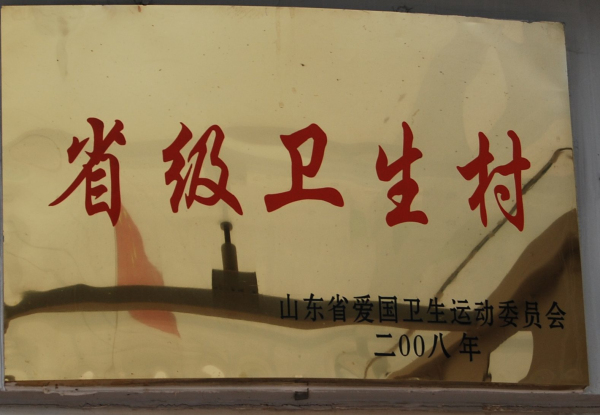 省级卫生村
山东省爱国卫生运动委员会
二00八年